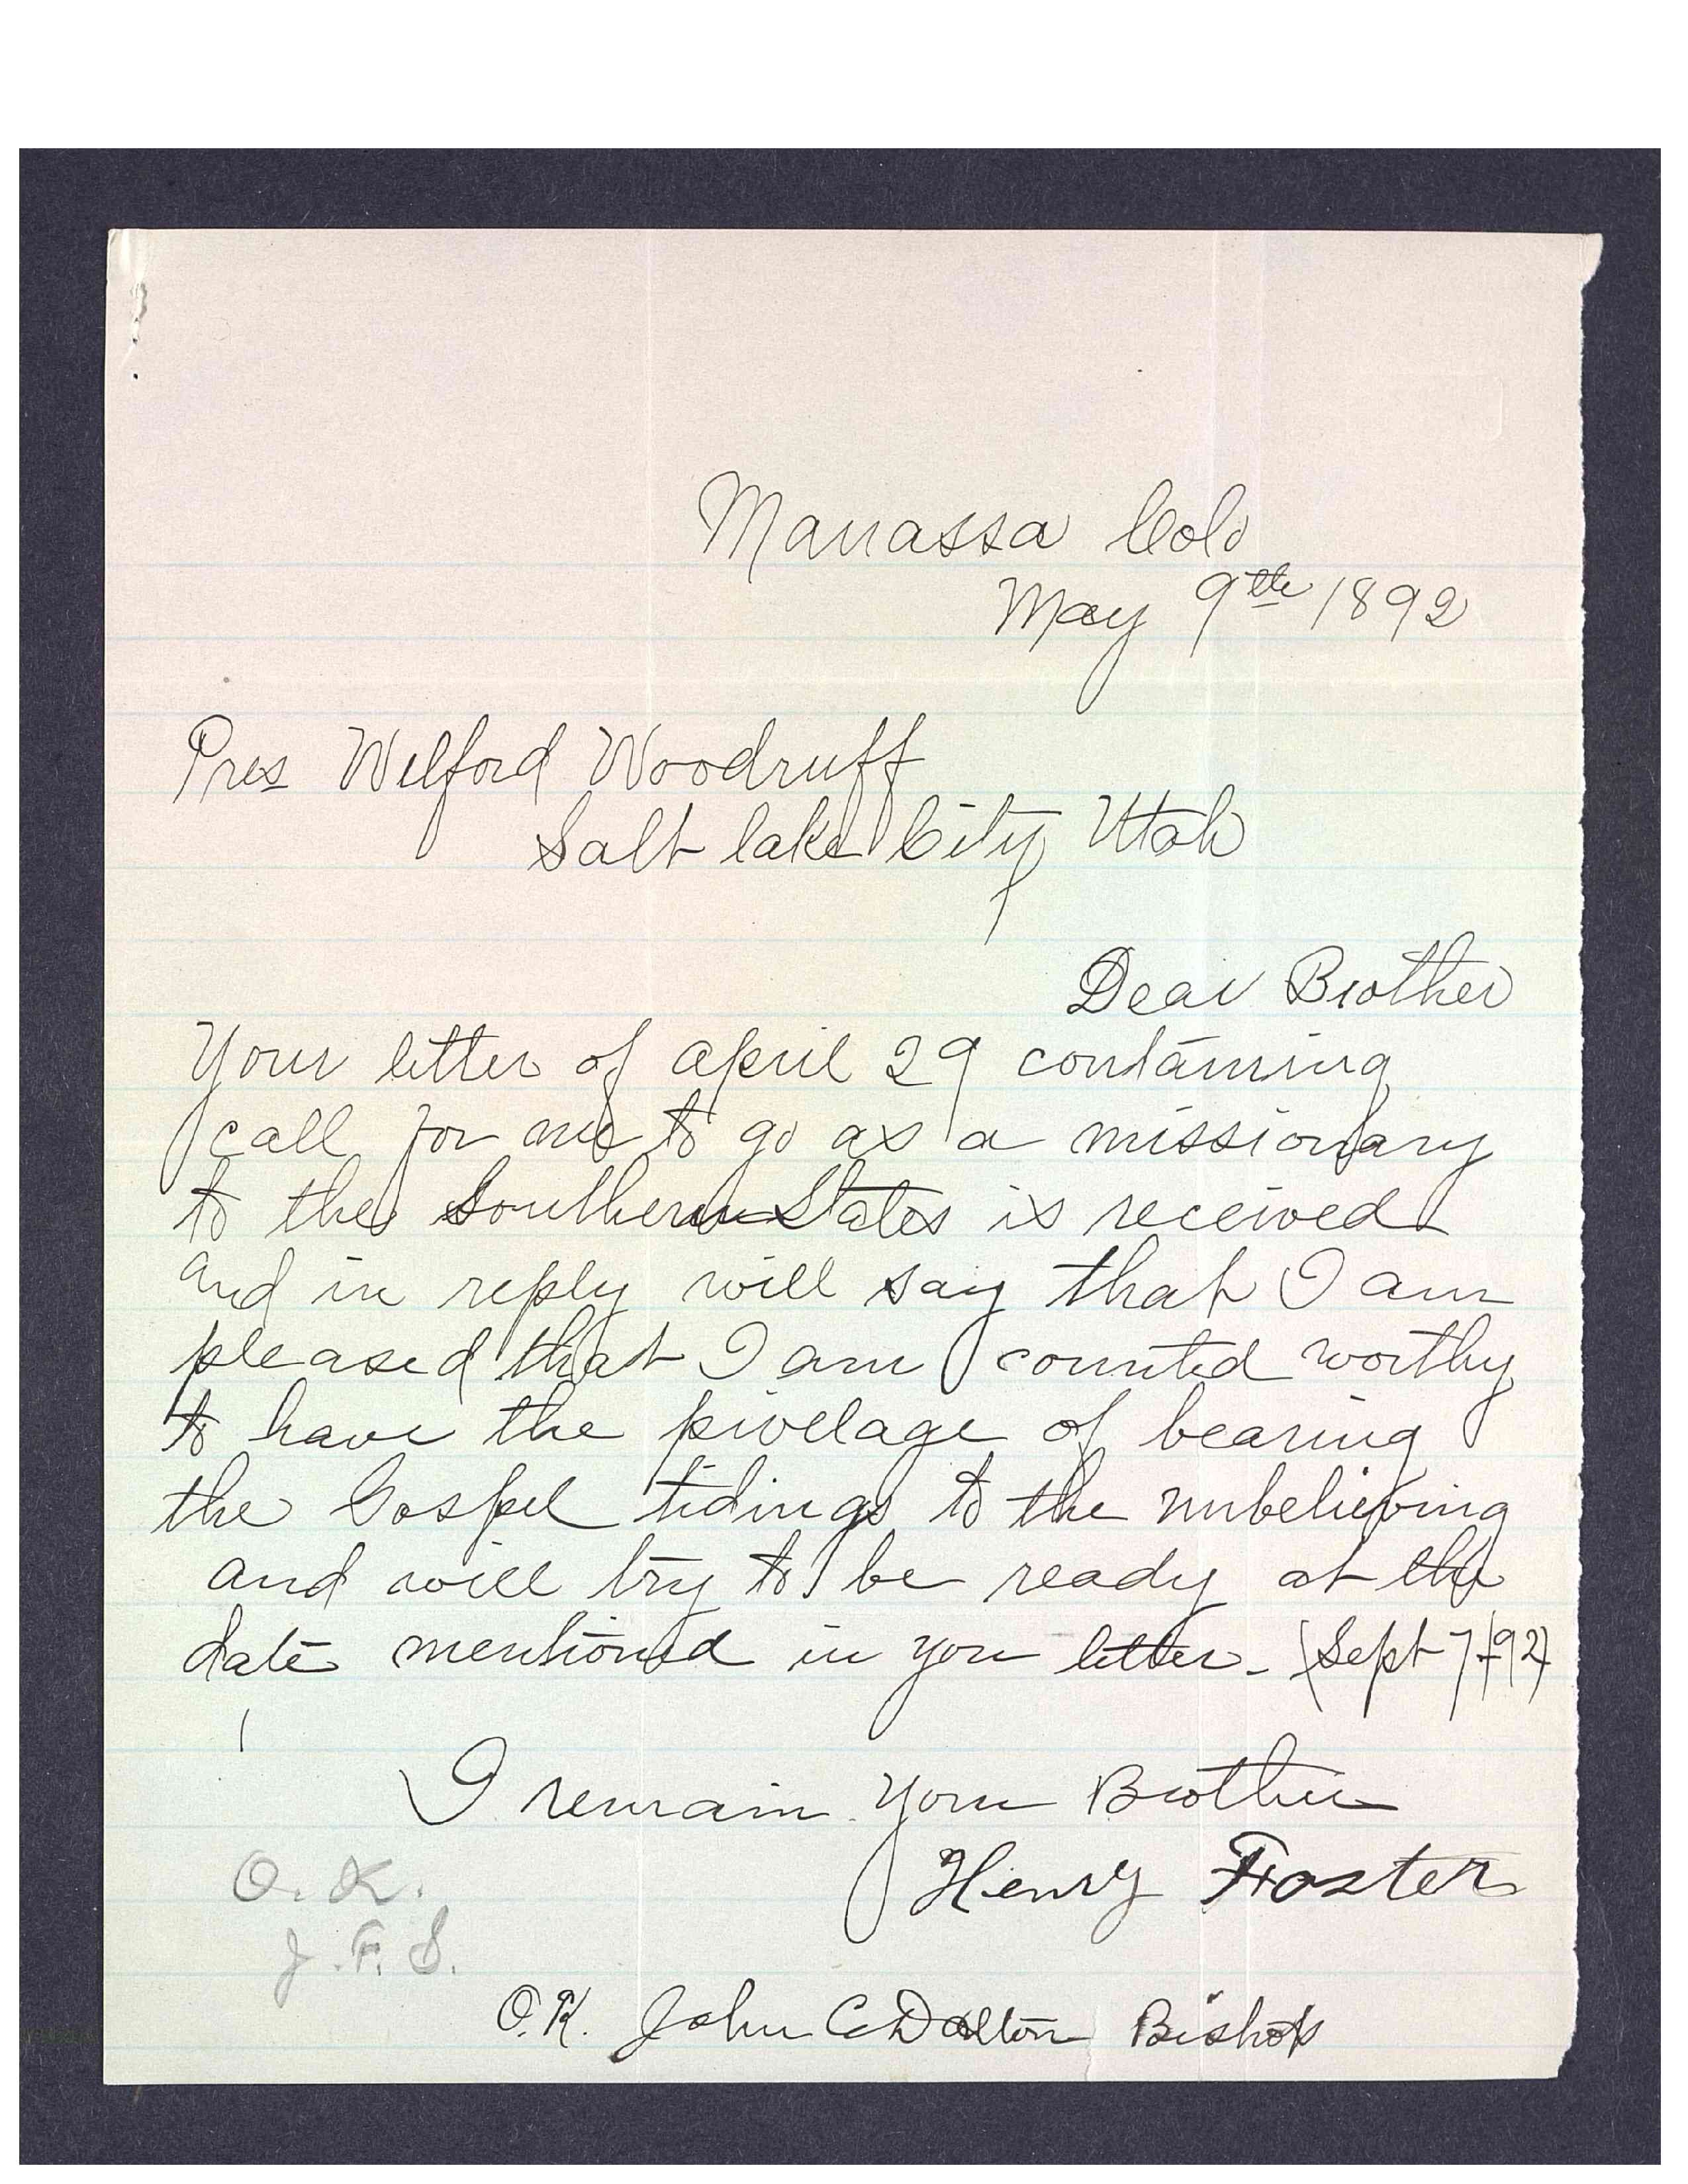 Manassa Colo
May 9th 1892
Pres Wilford Woodruff
Salt lake City Utah
Dear Brother
Your letter of april 29 containing
call for me to go as a missionary
to the Southern States is received
and in reply will say that I am
pleased that I am counted worthy
to have the pivelage of bearing
the Gospel tidings to the unbelieving
and will try to be ready at the
date mentioned in your letter. (Sept 7-92)
I remain your Brother
Henry Foster
O.K.
J.F.S.
O.K. John C Dalton Bishop